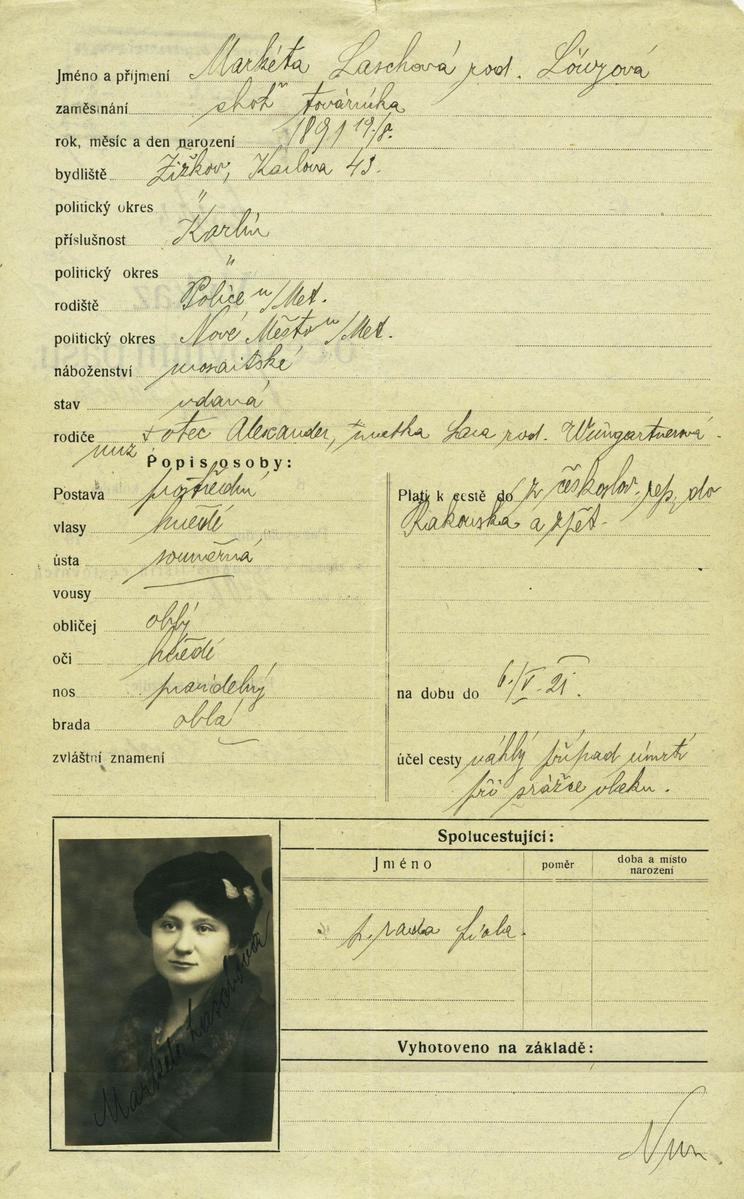 Jméno a příjmení Markéta Laschová rod. Löwyová
zaměstnání choť továrníka
rok, měsíc a den narození 1891 19/8.
bydliště Žižkov, Karlova 43.
politický okres "
příslušnost Karlín
politický okres "
rodiště Police n/Met.
politický okres Nové Město n/Met.
náboženství mosaitské
stav vdaná
rodiče otec Alexander, matka rod. Weingartnerová
muž
Popis osoby:
Postava prostřední
vlasy hnědé
ústa souměrná
vousy —
obličej oblý
oči hnědé
nos pravidelný
brada oblá
zvláštní znamení
Platí k cestě do z českoslov. rep. do
Rakouska a zpět.
na dobu do 6./V. 21.
účel cesty náhlý případ úmrtí
při srážce vlaku.
Spolucestující:
Jméno poměr doba a místo
narození
Vyhotoveno na základě:
Markéta Laschová